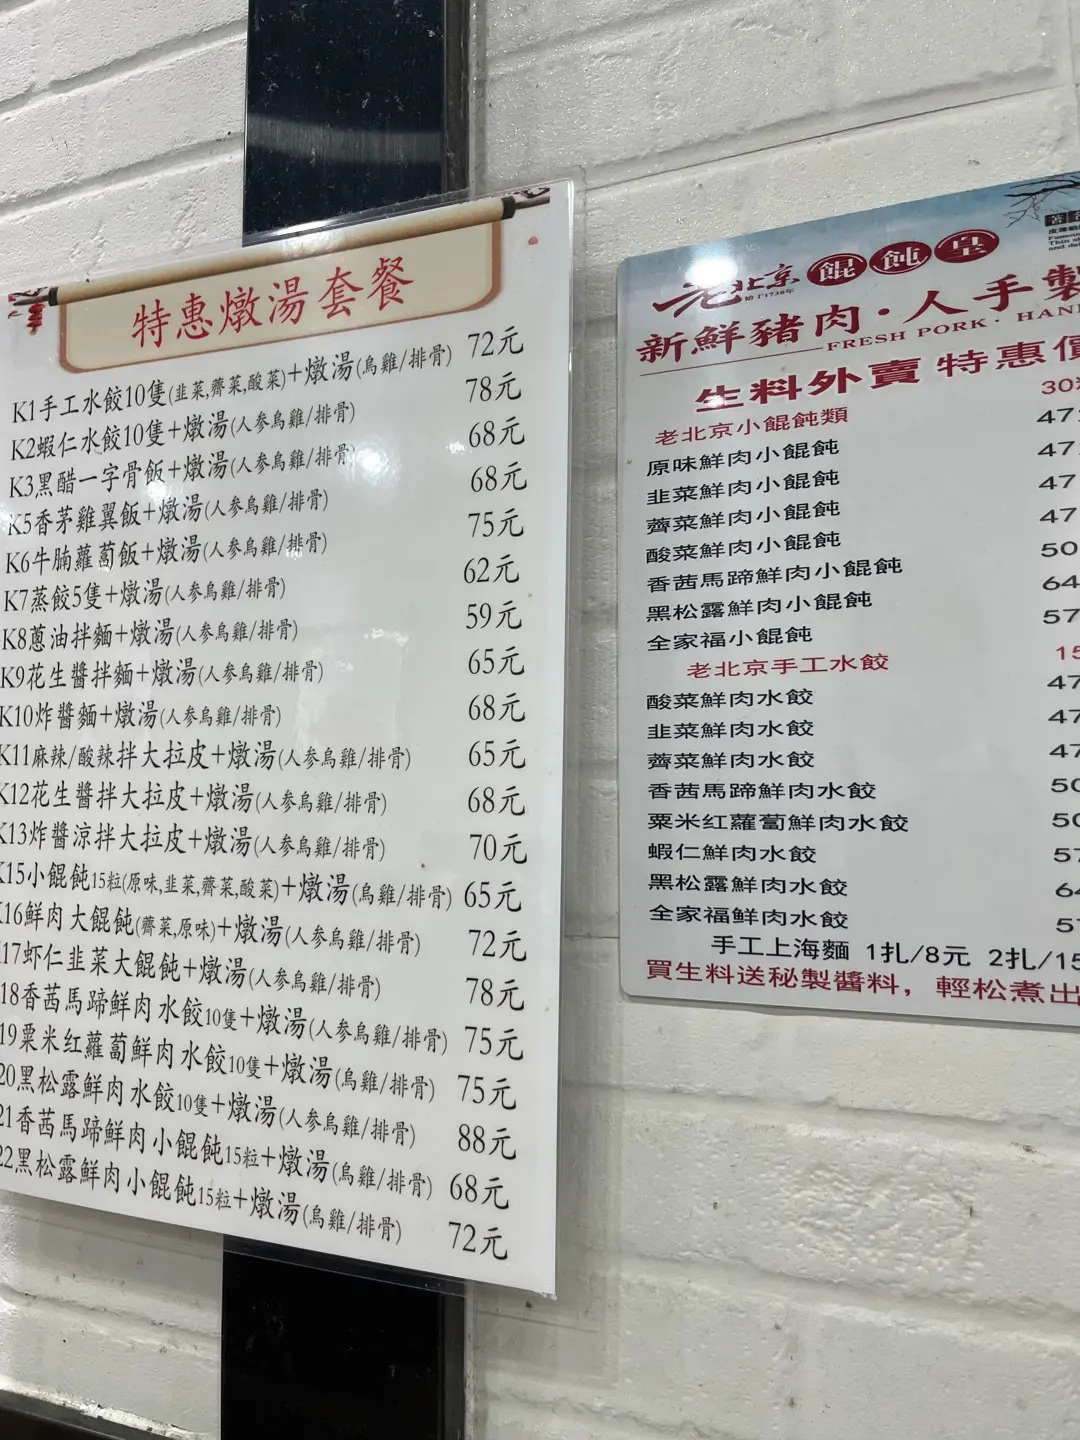 特惠燉湯套餐
K1手工水餃10隻(韭菜,薺菜,酸菜)+燉湯(烏雞/排骨) 72元
K2蝦仁水餃10隻+燉湯(人参烏雞/排骨) 78元
K3黑醋一字骨飯+燉湯(人参烏雞/排骨) 68元
K5香茅雞翼飯+燉湯(人参烏雞/排骨) 68元
K6牛腩蘿蔔飯+燉湯(人参烏雞/排骨) 75元
K7蒸餃5隻+燉湯(人参烏雞/排骨) 62元
K8蔥油拌麵+燉湯(人参烏雞/排骨) 59元
K9花生醬拌麵+燉湯(人参烏雞/排骨) 65元
K10炸醬麵+燉湯(人参烏雞/排骨) 68元
K11麻辣/酸辣拌大拉皮+燉湯(人参烏雞/排骨) 65元
K12花生醬拌大拉皮+燉湯(人参烏雞/排骨) 68元
K13炸醬涼拌大拉皮+燉湯(人参烏雞/排骨) 70元
K15小餛飩15粒(原味,韭菜,薺菜,酸菜)+燉湯(烏雞/排骨) 65元
K16鮮肉大餛飩(薺菜,原味)+燉湯(人参烏雞/排骨) 72元
17虾仁韭菜大餛飩+燉湯(人参烏雞/排骨) 78元
18香茜馬蹄鮮肉水餃10隻+燉湯(人参烏雞/排骨) 75元
19粟米红蘿蔔鮮肉水餃10隻+燉湯(烏雞/排骨) 75元
20黑松露鮮肉水餃10隻+燉湯(人参烏雞/排骨) 88元
21香茜馬蹄鮮肉小餛飩15粒+燉湯(烏雞/排骨) 68元
22黑松露鮮肉小餛飩15粒+燉湯(烏雞/排骨) 72元
老北京餛飩皇
新鮮豬肉·人手製
FRESH PORK· HAN
生料外賣 特惠價
30
老北京小餛飩類
原味鮮肉小餛飩 47
韭菜鮮肉小餛飩 47
薺菜鮮肉小餛飩 47
酸菜鮮肉小餛飩 47
香茜馬蹄鮮肉小餛飩 50
黑松露鮮肉小餛飩 64
全家福小餛飩 57
老北京手工水餃 15
酸菜鮮肉水餃 47
韭菜鮮肉水餃 47
薺菜鮮肉水餃 47
香茜馬蹄鮮肉水餃 50
粟米红蘿蔔鮮肉水餃 50
蝦仁鮮肉水餃 57
黑松露鮮肉水餃 64
全家福鮮肉水餃 57
手工上海麵 1扎/8元 2扎/15
買生料送秘製醬料，輕松煮出